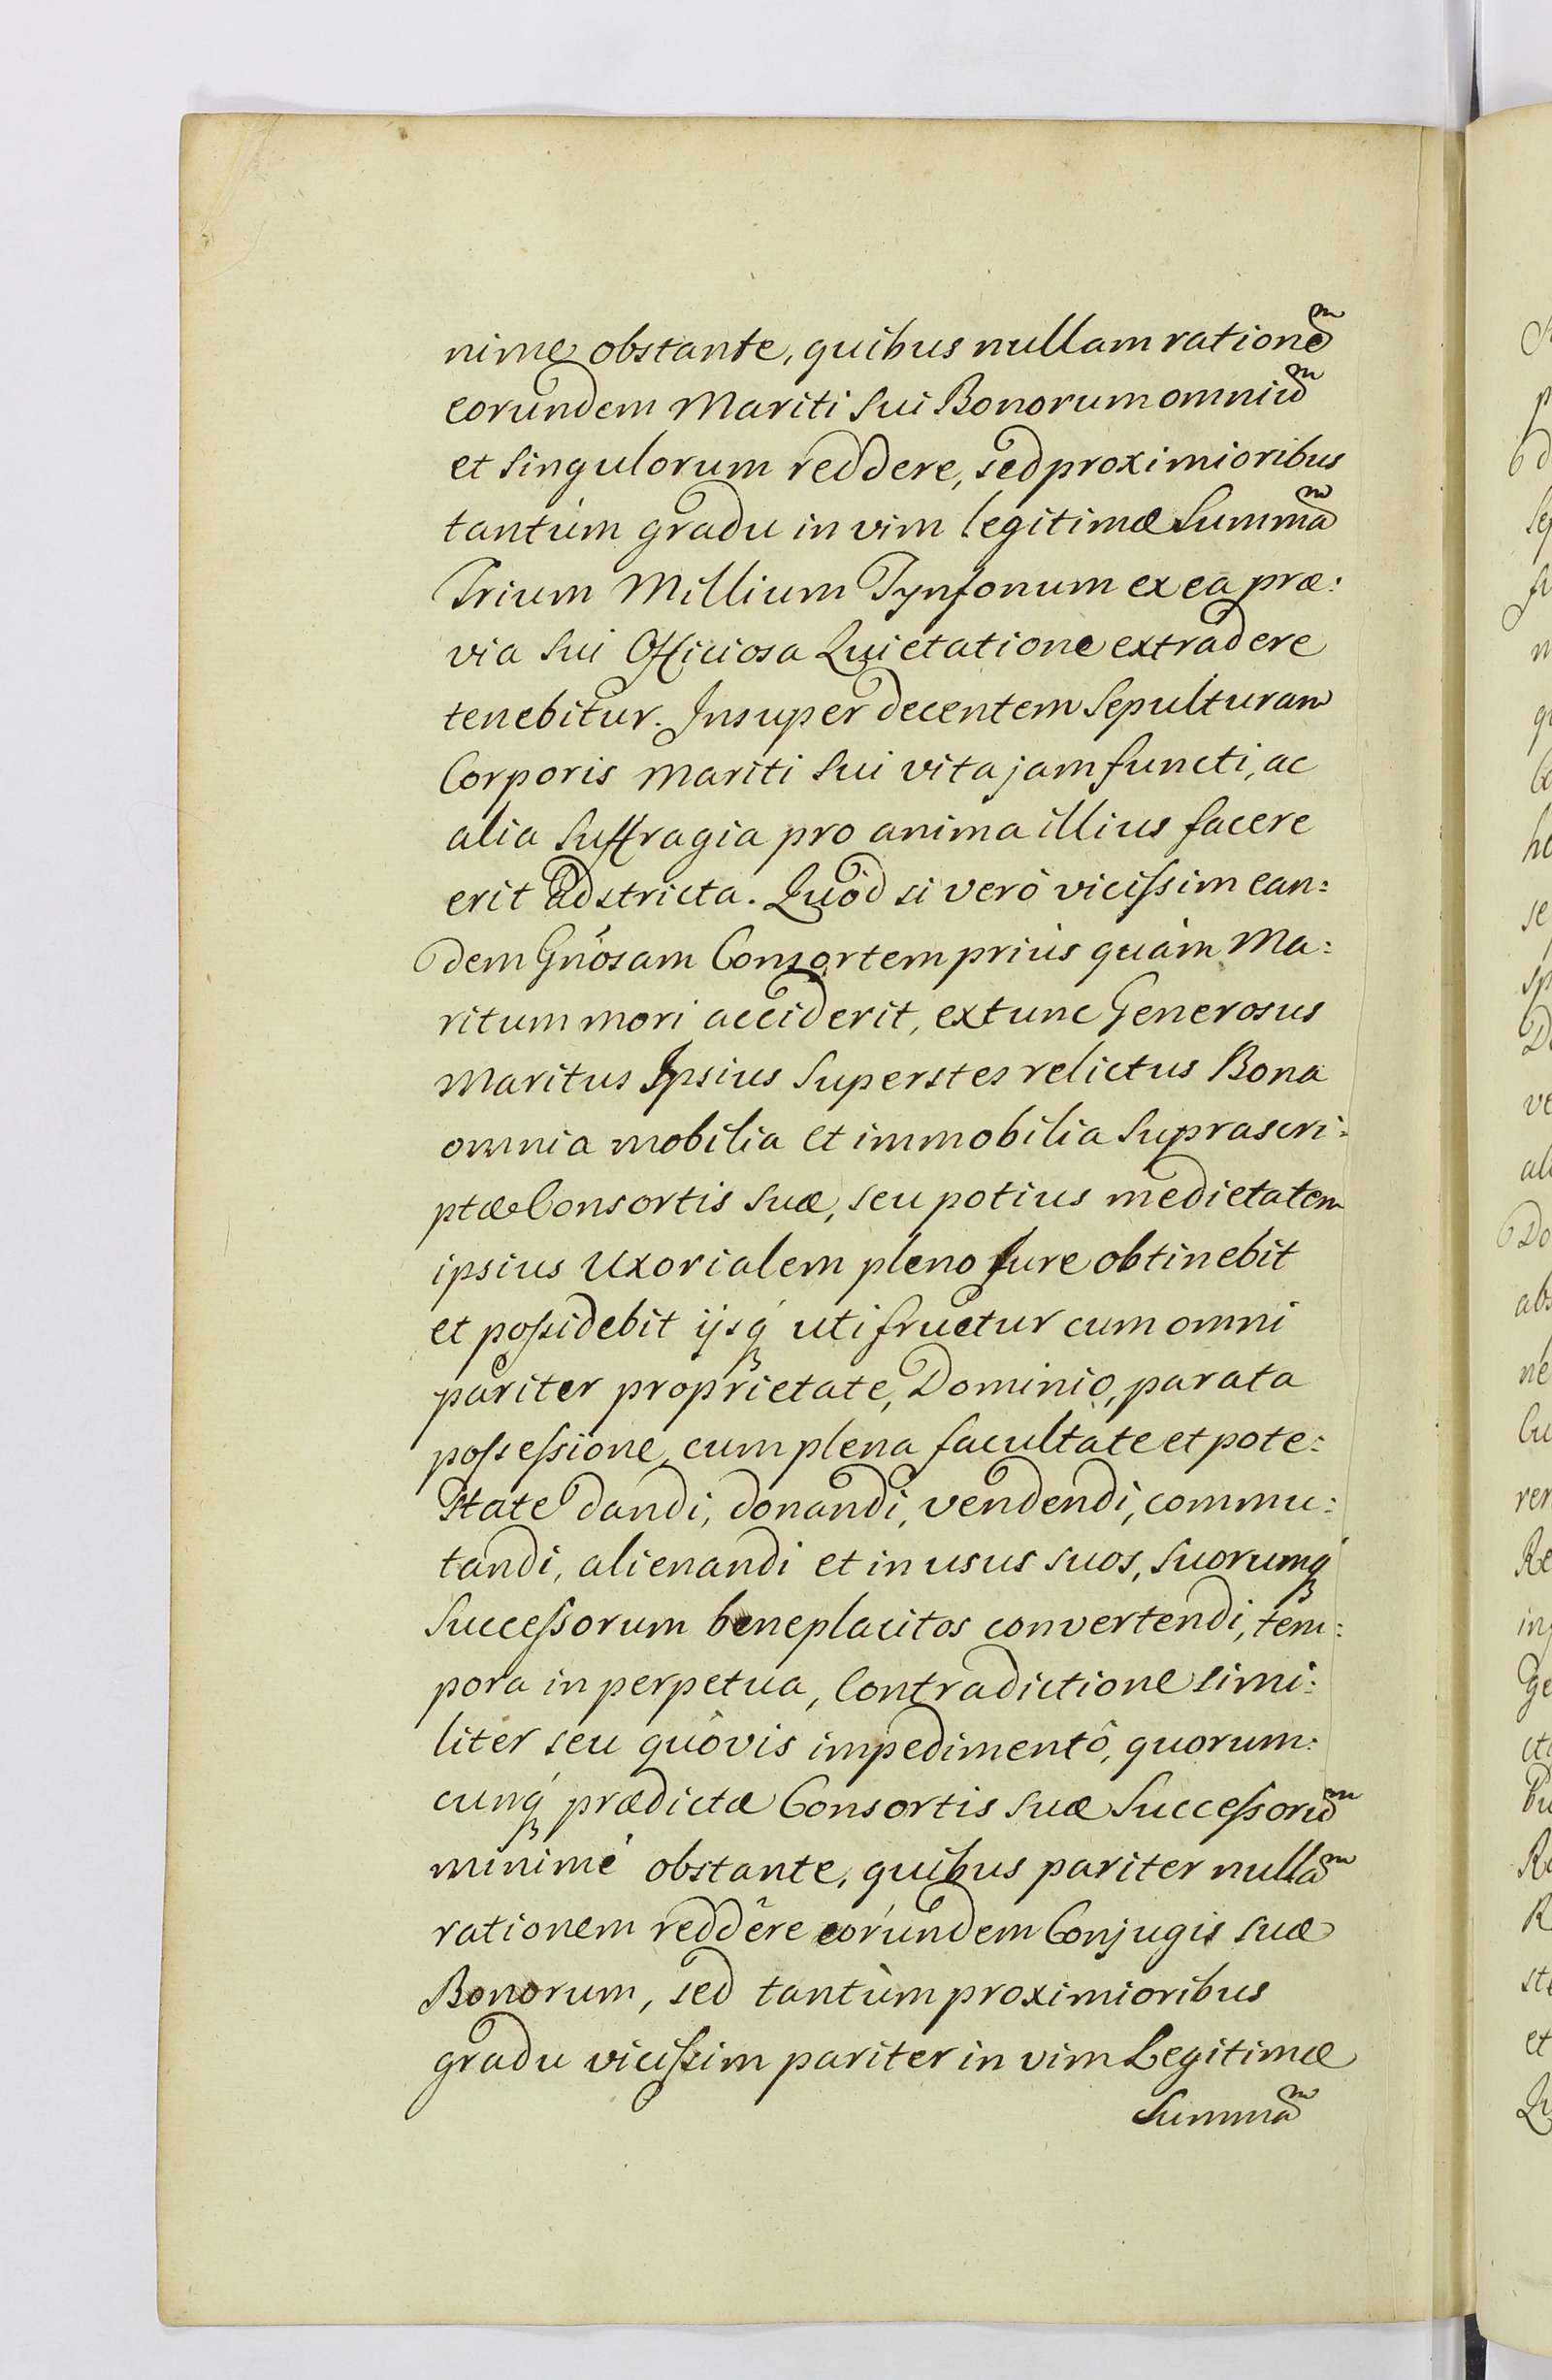 nime obstante, quibus nullam rationem
eorundem Mariti sui Bonorum omnium
et singulorum reddere, sed proximioribus
tantùm gradu in vim legitimæ Summam
Trium Millium Tynfonum ex ea præ:
via sui Officiosa Quietatione extradere
tenebitur. Insuper decentem Sepulturam
Corporis Mariti sui vita jam functi, ac
alia Suffragia pro anima illius facere
erit adstricta. Quòd si verò vicissim ean:
dem Gnosam Consortem priùs quàm Ma:
ritum mori acciderit, extunc Generosus
Maritus Ipsius Superstes relictus Bona
omnia mobilia et immobilia suprascri:
ptæ Consortis suæ, seu potius medietatem
ipsius Uxorialem pleno Jure obtinebit
et possidebit ijsq́ʒ uti fruetur cum omni
pariter proprietate, Dominio, parata
possessione, cum plena facultate et pote:
state dandi, donandi, vendendi, commu:
tandi, alienandi et in usus suos, suorumq́ʒ
Successorum beneplacitos convertendi, tem:
pora in perpetua, Contradictione simi:
liter seu quôvis impedimentô, quorum:
cunq́ʒ prædictæ Consortis suæ Successorum
minimè obstante, quibus pariter nullam
rationem reddere eorundem Conjugis suæ
Bonorum, sed tantùm proximioribus
gradu vicissim pariter in vim Legitimæ
Summam